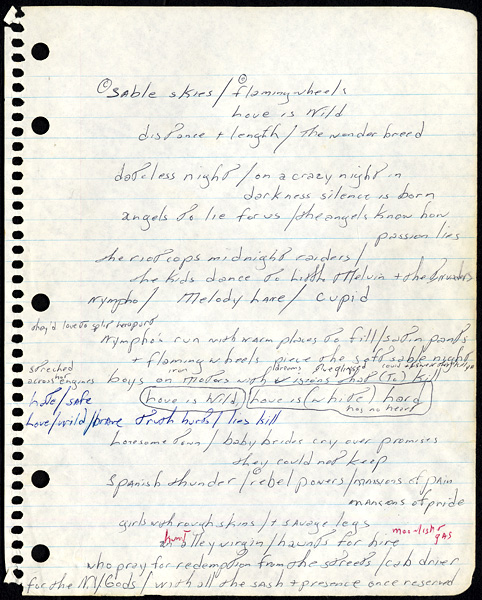 © sable skies / © flaming wheels
Love is Wild
distance + length / the wonder breed
dateless night / on a crazy night in
darkness silence is born
angels to lie for us / the angels know how
passion lies
the riot cops midnight raiders /
the kids dance to Little Melvin + the Invaders
nympho / Melody Lane / Cupid
they'd love to split
Nympho's run with warm places to fill / satin pants
+ flaming wheels pierce the soft sable night
stretched
across hot engines boys on motors with iron visions that (To) kill
hate / safe (Love is Wild) (Love is (white) hard
has no heart
Love / wild / brave truth hurts / lies kill
Lonesome Town / baby brides cry over promises
they could not keep
Spanish thunder / rebel powers / mansions of pain
mansions of pride
girls with rough skins / + savage legs
alley virgin / haunts for hire
hunt
gas
who pray for redemption from the streets / cab driver
for the NY Gods / with all the sash + presence once reserved